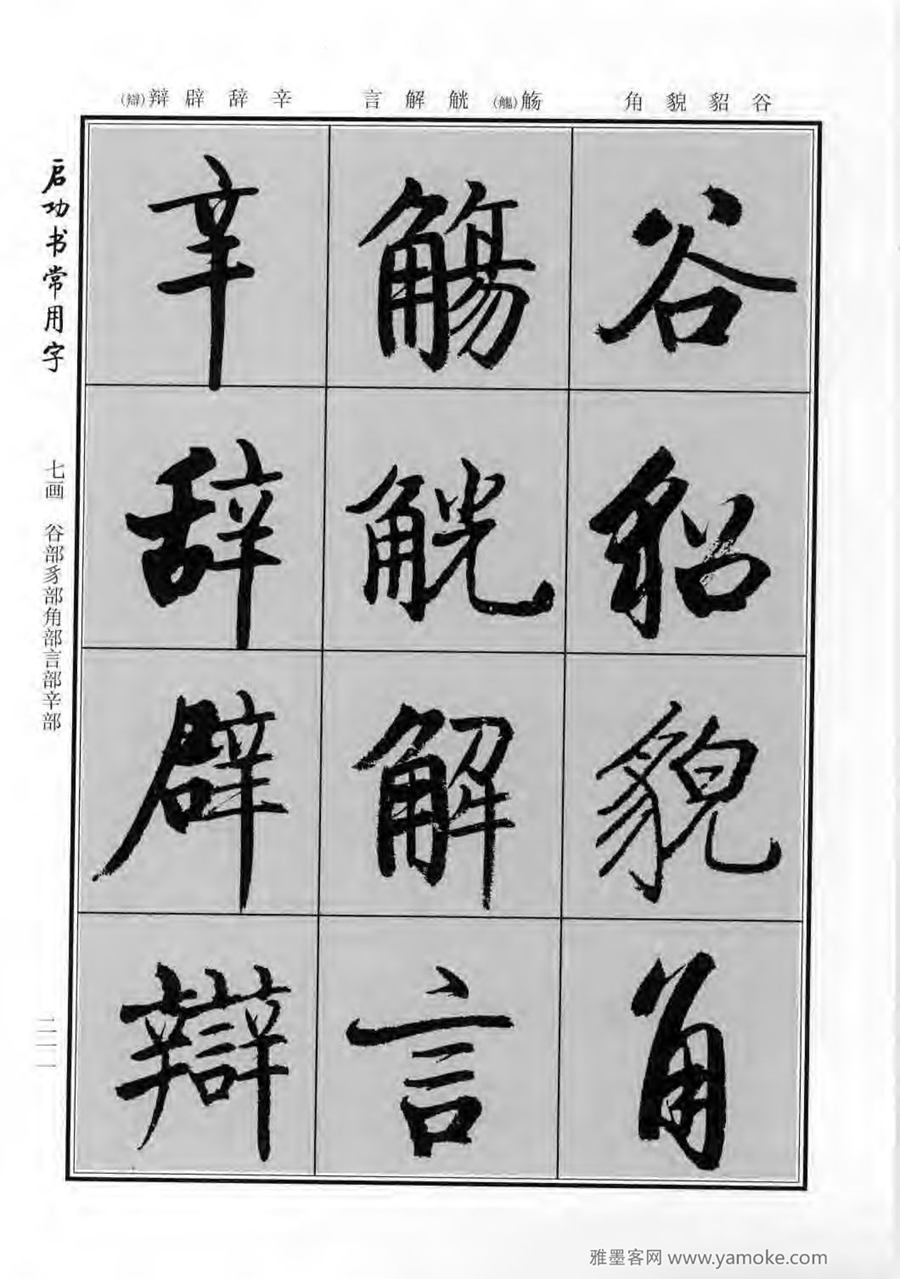 谷貂貌角
觞(觴)觥解言
辛辞辟辩(辯)
谷
貂
貌
角
觴
觥
解
言
辛
辞
辟
辯
启功书常用字
七画 谷部豸部角部言部辛部
二一一
雅墨客网 www.yamoke.com